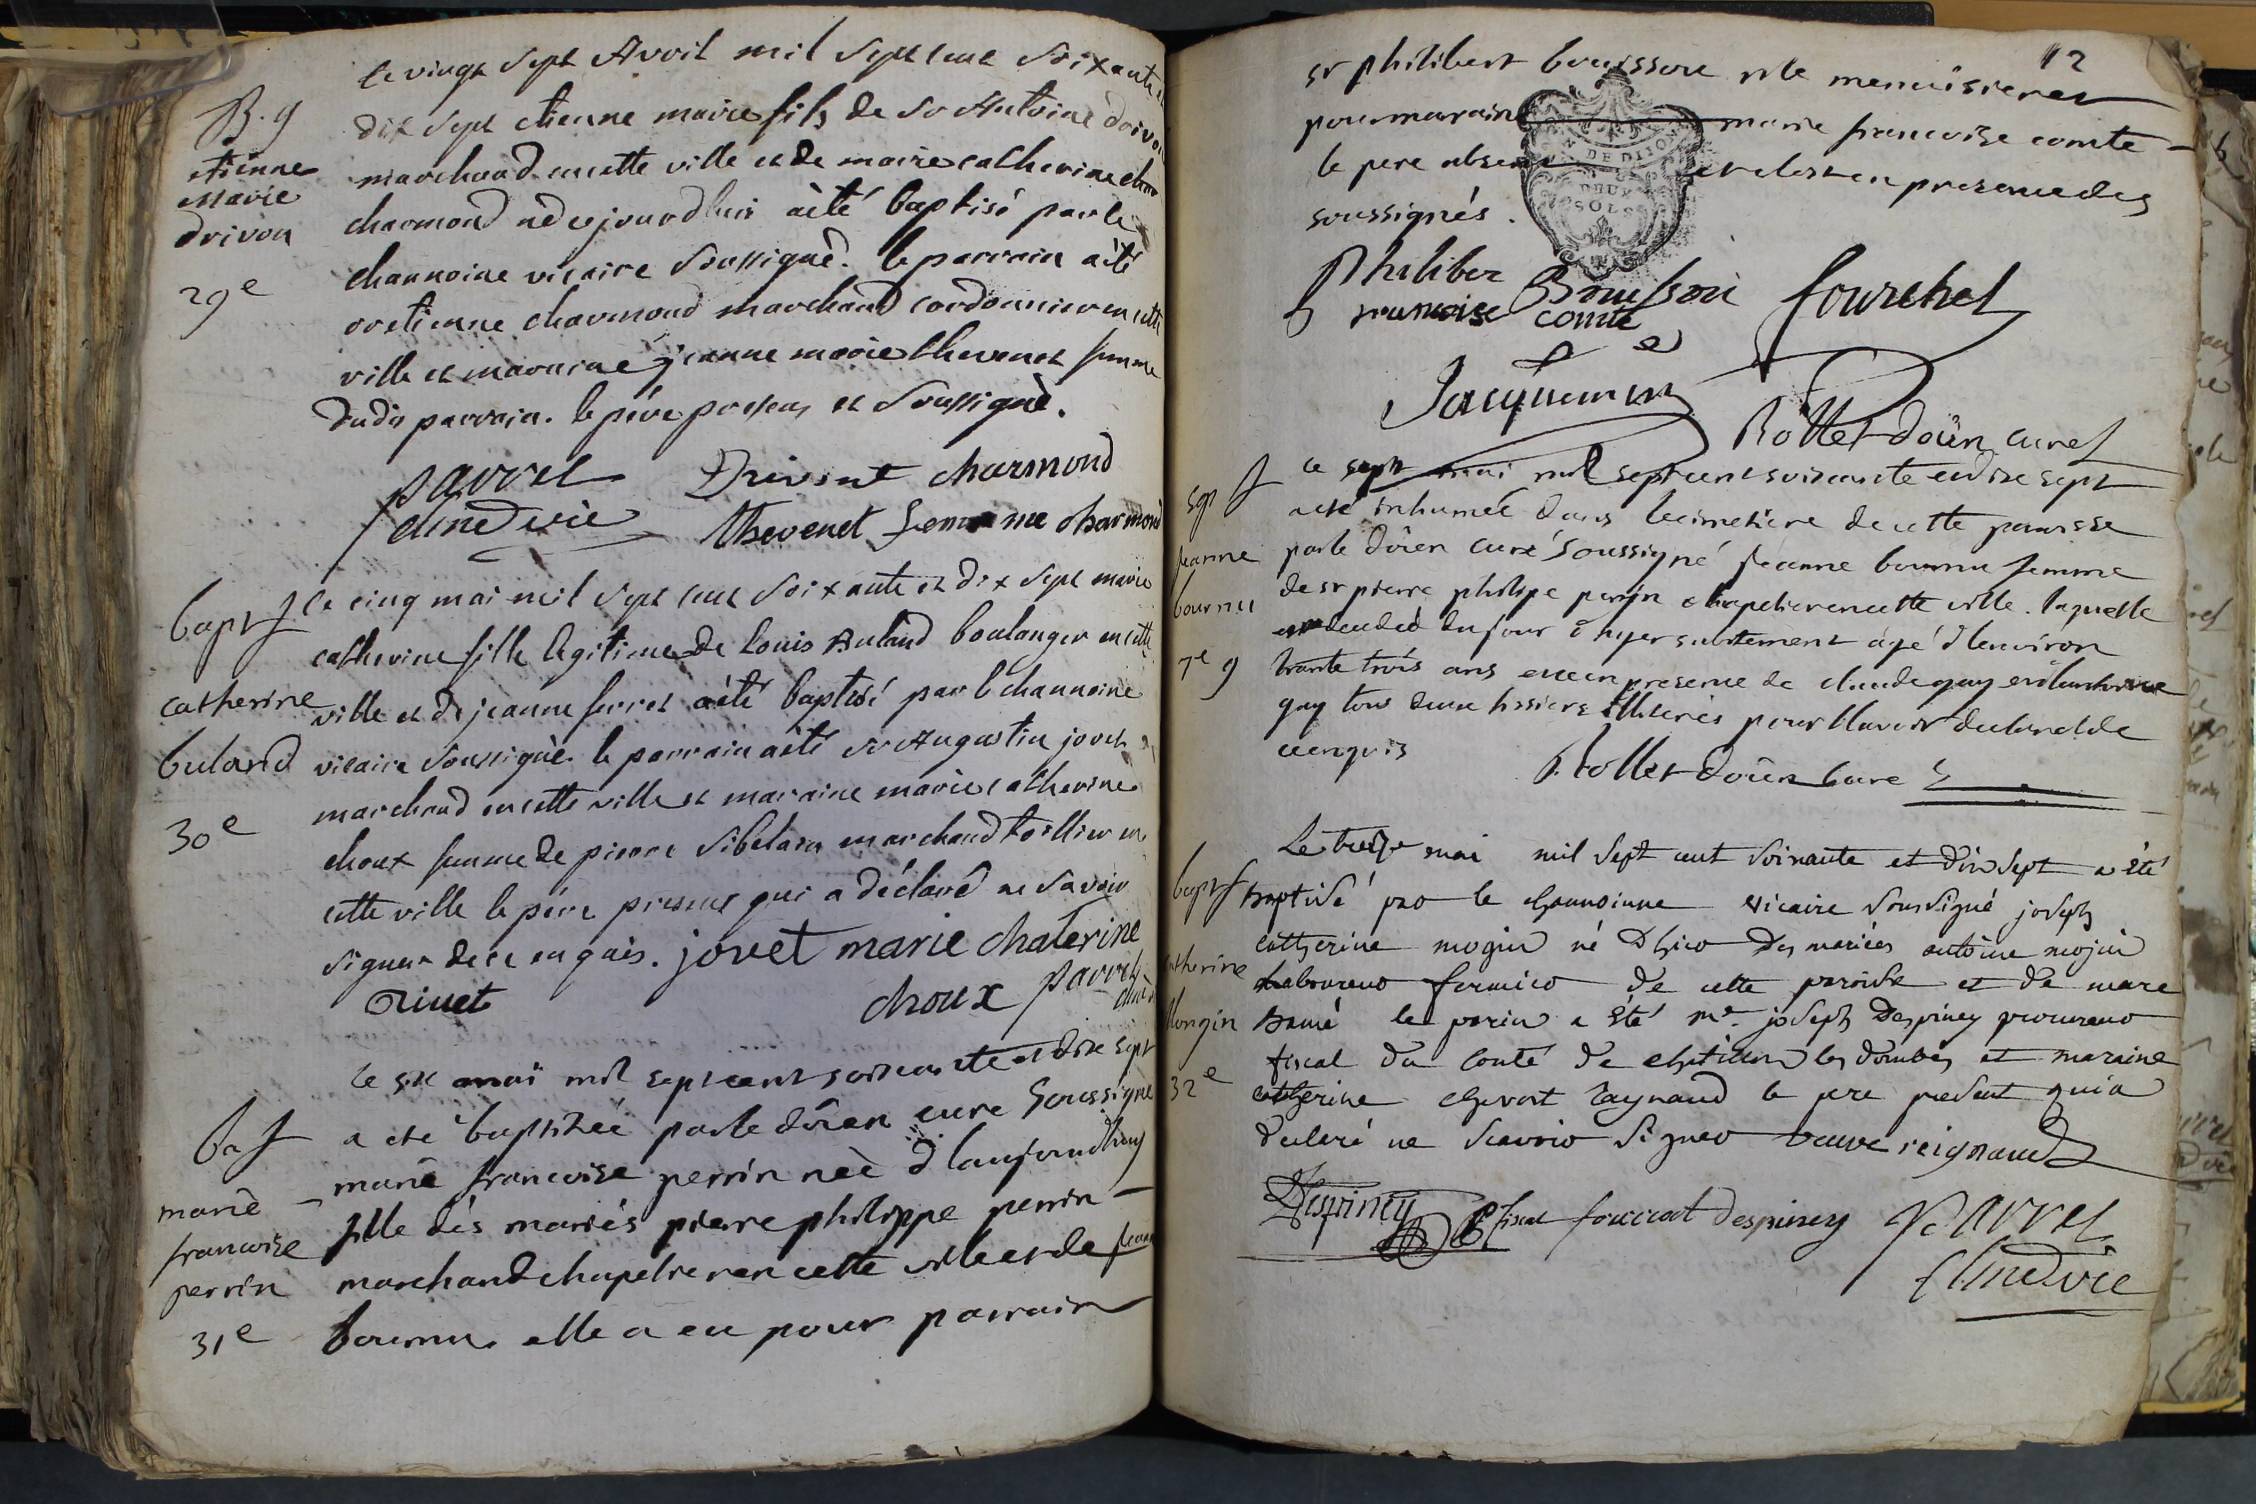 le vingt sept Avril mil sept cent soixante et
B. 9
dix sept etienne marie fils de sr Antoine drivon
etienne
marie
drivon
29e
marchand en cette ville et de marie catherine char
charmond né ce jourdhuis àèté baptisé par le
channoine vicaire soussignè. le parrain aèté
etienne charmond marchand cordonnier en cette
ville et maraine jeanne marie thevenet femme
dudit parrain. le père présens et soussignè.
parret
chne vic
Drivont charmond
thevenet femme charmond
bapt
catherine
buland
30e
le cinq mai mil sept cent soixante et dix sept marie
catherine fille legitime de louis Buland boulanger en cette
ville et de jeanne ferret aèté baptisé par le channoine
vicaire soussignè. le parrain aèté sr Augustin jovet
marchand en cette ville et maraine marie catherine
choux femme de pierre sibelain marchand toillier en
cette ville le père présent qui a déclaré ne savoir
signer de ce enquis. jovet marie chaterine
choux parret
chne
le six mai mil sept cent soixante et dix sept
marie
francoise
perrin
31e
a eté baptizée par le doïen curé soussigné
marie francoise perrin née d'laujourdhuy
fille dés mariés pierre philippe perrin
marchand chapelier en cette ville et de jeanne
bournu. elle a eu pour parrain
112
sr philibert bouissoue mle menuisier et
pour maraine marie francoise comte
le pere absent et celast en presence des
soussignés.
DE DIJON
DEUX
SOLS
Philiber Bouissou fourchet
francoise comte
Jacquemin
Rollet doïen curé
sep
jeanne
bournu
7e 9
ce sept mai mil sept cent soixante et dix sept
a eté inhumée dans le cimetiere de cette paroisse
par le doïen curé soussigné jeanne bournu femme
de sr pierre philipe perrin chapelier en cette ville. laquelle
est decedeé du jour d'hyer subitement agé d'lenviron
trante trois ans en presence de claude guy et
guy tous deux tissiers illiterés pour l'lavoir declarel de
ce enquis
Rollet doïen curé
bapt
catherine
Mongin
32e
Le treize mai mil sept cent soixante et dix sept a été
baptisé par le channoinne vicaire soussigné joseph
catherine mogin né d'hier des mariés antoine mojin
laboureur fermier de cette paroisse et de marie
bamé le parin a été mr joseph Despiney procureur
fiscal du comté de chatillon les dombes et maraine
catherine chevrot raynaud le pere present qui a
declaré ne scavoir signer veuve reignaud
Despiney
P. fiscal fourcrat despiney parret
chne vic